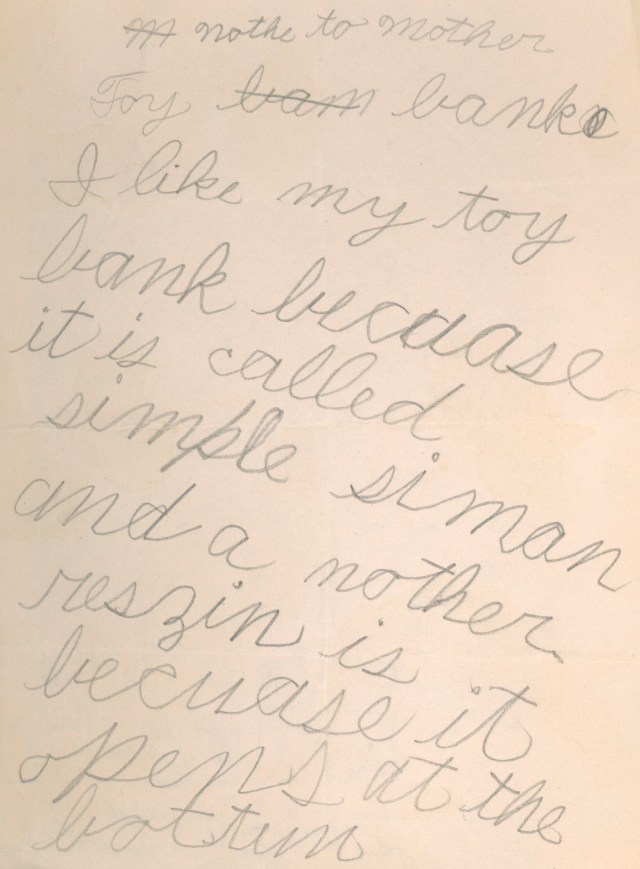 nothe to mother
Toy bam bank
I like my toy
bank becuase
it is called
simple siman
and a nother
reszin is
becuase it
opens at the
bottum